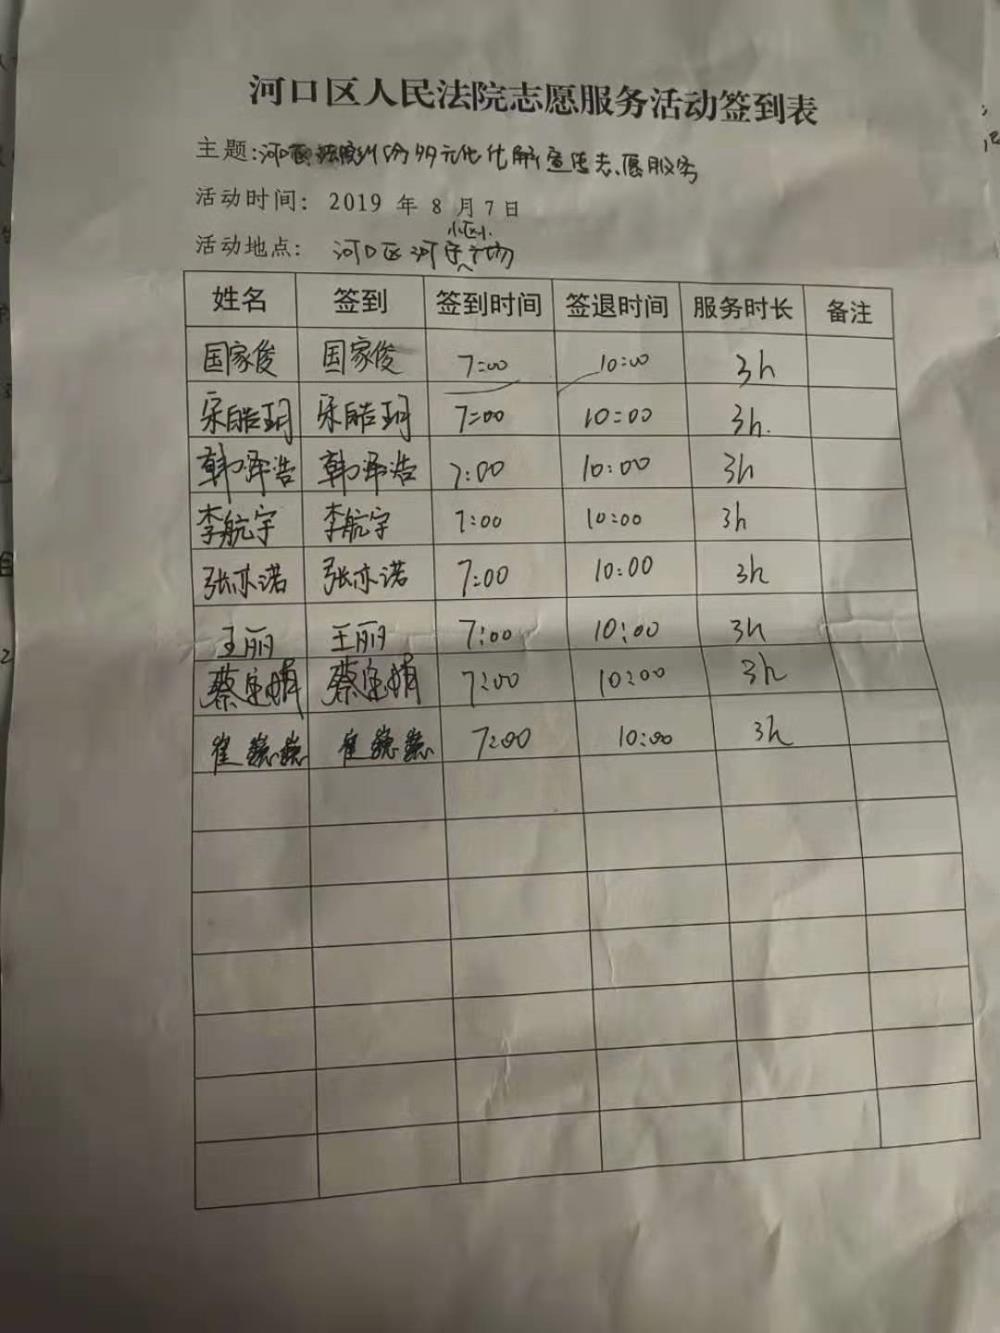 河口区人民法院志愿服务活动签到表
主题:河口区法院纠纷多元化化解宣传志愿服务
活动时间: 2019 年 8 月 7 日
小区小
活动地点: 河口区河广场
姓名 签到 签到时间 签退时间 服务时长 备注
国家俊 国家俊 7:00 10:00 3h
宋皓玥 宋皓玥 7:00 10:00 3h.
韩泽浩 韩泽浩 7:00 10:00 3h
李航宇 李航宇 7:00 10:00 3h
张亦诺 张亦诺 7:00 10:00 3h
王丽 王丽 7:00 10:00 3h
蔡宝娟 蔡宝娟 7:00 10:00 3h
崔 崔 7:00 10:00 3h